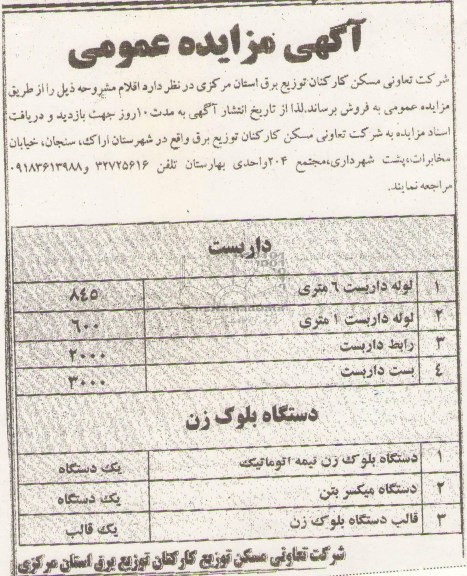 آگهی مزایده عمومی
شرکت تعاونی مسکن کارکنان توزیع برق استان مرکزی در نظر دارد اقلام مشروحه ذیل را از طریق
مزایده عمومی به فروش برساند.لذا از تاریخ انتشار آگهی به مدت ۱۰روز جهت بازدید و دریافت
اسناد مزایده به شرکت تعاونی مسکن کارکنان توزیع برق واقع در شهرستان اراک، سنجان، خیابان
مخابرات،پشت شهرداری،مجتمع ۲۰۴واحدی بهارستان تلفن ۳۲۷۲۵۶۱۶ و۰۹۱۸۳۶۱۳۹۸۸
مراجعه نمایند.
داربست
۱ لوله داربست ۶ متری ۸۴۵
۲ لوله داربست ۱ متری ۶۰۰
۳ رابط داربست ۲۰۰۰
۴ بست داربست ۳۰۰۰
دستگاه بلوک زن
۱ دستگاه بلوک زن نیمه اتوماتیک یک دستگاه
۲ دستگاه میکسر بتن یک دستگاه
۳ قالب دستگاه بلوک زن یک قالب
شرکت تعاونی مسکن توزیع کارکنان توزیع برق استان مرکزی